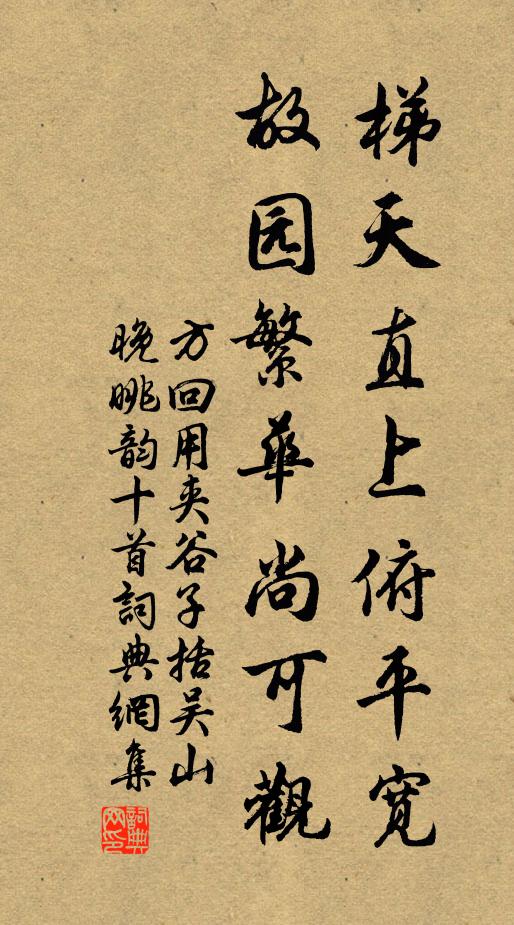 梯天直上俯平寬
故园繁華尚可觀
方回用夹谷子括吴山
晚眺韵十首詞典網集
詞典网印